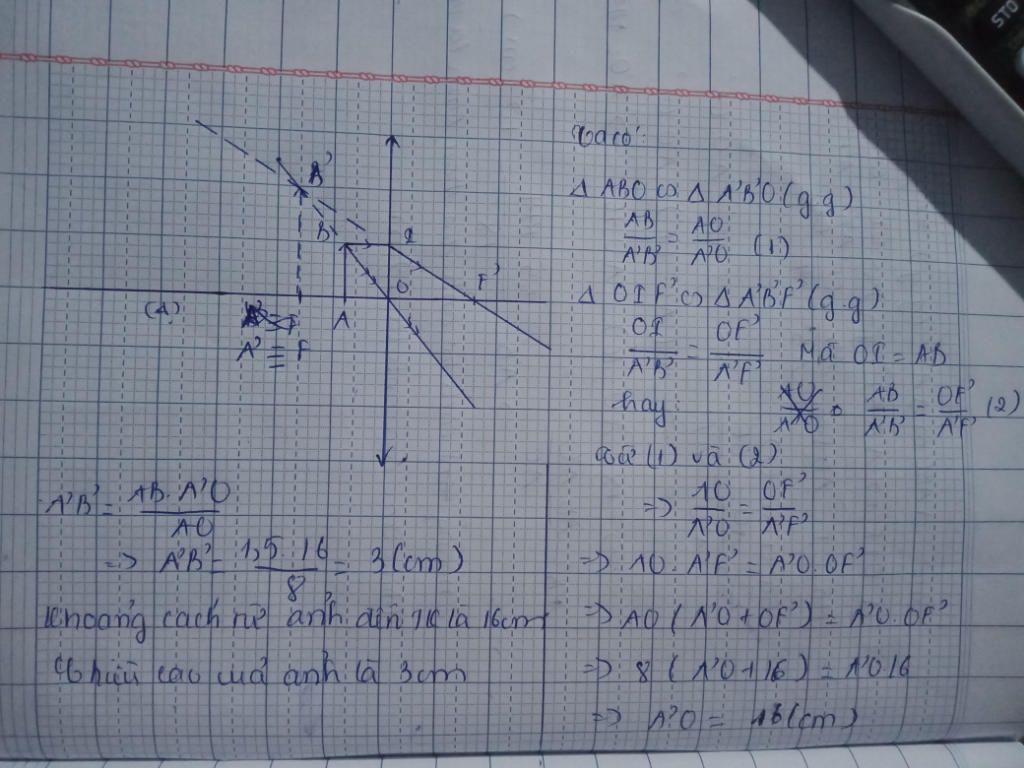 STO
Ta có:
Δ ABO ∽ Δ A'B'O (g.g)
AB/A'B' = AO/A'O (1)
Δ OIF' ∽ Δ A'B'F' (g.g)
OI/A'B' = OF'/A'F' Mà OI = AB
hay AB/A'B' = OF'/A'F' (2)
Từ (1) và (2)
=> AO/A'O = OF'/A'F'
=> AO. A'F' = A'O. OF'
=> AO (A'O + OF') = A'O. OF'
=> 8 (A'O + 16) = A'O 16
=> A'O = 16 (cm)
B'
B
I
O
F'
(Δ)
A
A' ≡ F
A'B' = AB. A'O/AO
=> A'B' = 1,5. 16/8 = 3 (cm)
Khoảng cách từ ảnh đến TK là 16cm
Chiều cao của ảnh là 3cm